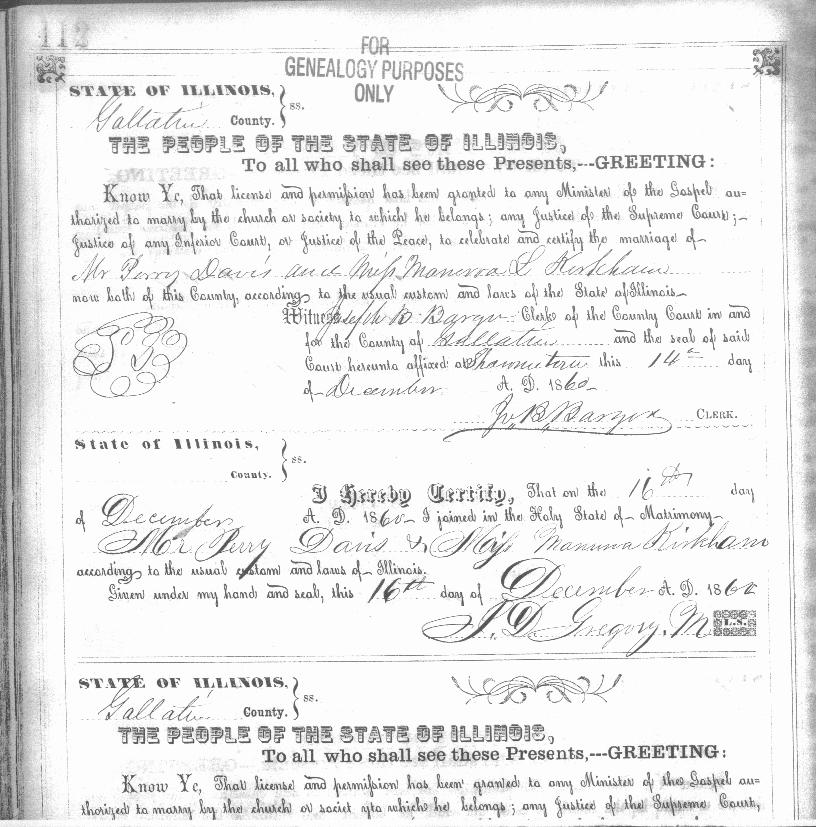 112
FOR
GENEALOGY PURPOSES
ONLY
STATE OF ILLINOIS,
Gallatin County. } ss.
THE PEOPLE OF THE STATE OF ILLINOIS,
To all who shall see these Presents,---GREETING:
Know Ye, That license and permission has been granted to any Minister of the Gospel au-
thorized to marry by the church or society to which he belongs; any Justice of the Supreme Court;
Justice of any Inferior Court, or Justice of the Peace, to celebrate and certify the marriage of
Mr Perry Davis and Miss Manerva L Kirkham
now both of this County, according to the usual custom and laws of the State of Illinois
Witness Joseph B Barger Clerk of the County Court in and
for the County of Gallatin and the seal of said
Court hereunto affixed at this 14th day
of December A. D. 1860
Jo. B. Barger CLERK.
State of Illinois,
County. } ss.
I Hereby Certify, That on the 16th day
of December A. D. 1860 I joined in the Holy State of Matrimony
Mr Perry Davis & Miss Kirkham
according to the usual custom and laws of Illinois.
Given under my hand and seal, this 16th day of December A. D. 1860
J. D. Gregory. M L.S.
STATE OF ILLINOIS,
Gallatin County. } ss.
THE PEOPLE OF THE STATE OF ILLINOIS,
To all who shall see these Presents,---GREETING:
Know Ye, That license and permission has been granted to any Minister of the Gospel au-
thorized to marry by the church or societ yto which he belongs; any Justice of the Supreme Court,